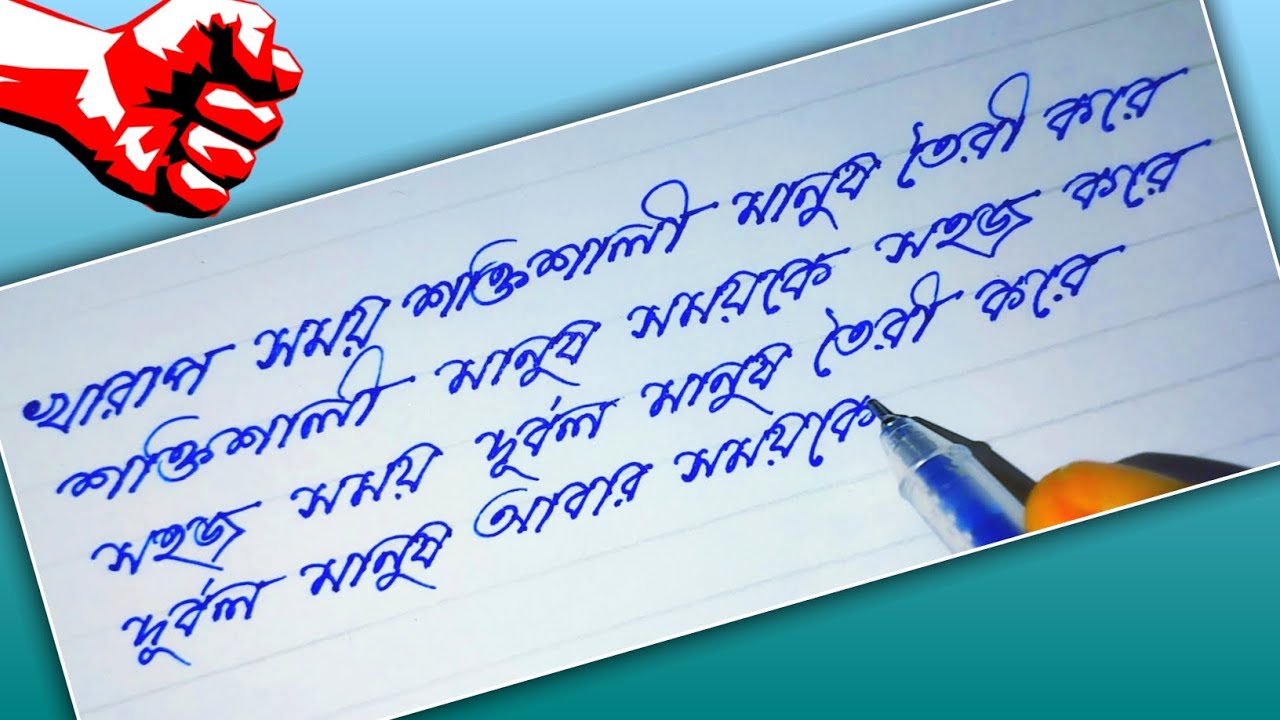 খারাপ সময় শক্তিশালী মানুষ তৈরী করে
শক্তিশালী মানুষ সময়কে সহজ করে
সহজ সময় দুর্বল মানুষ তৈরী করে
দুর্বল মানুষ আবার সময়কে